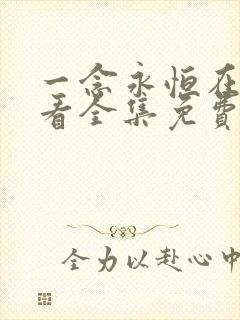 一念永恒在
看全集免费
全力以赴心中